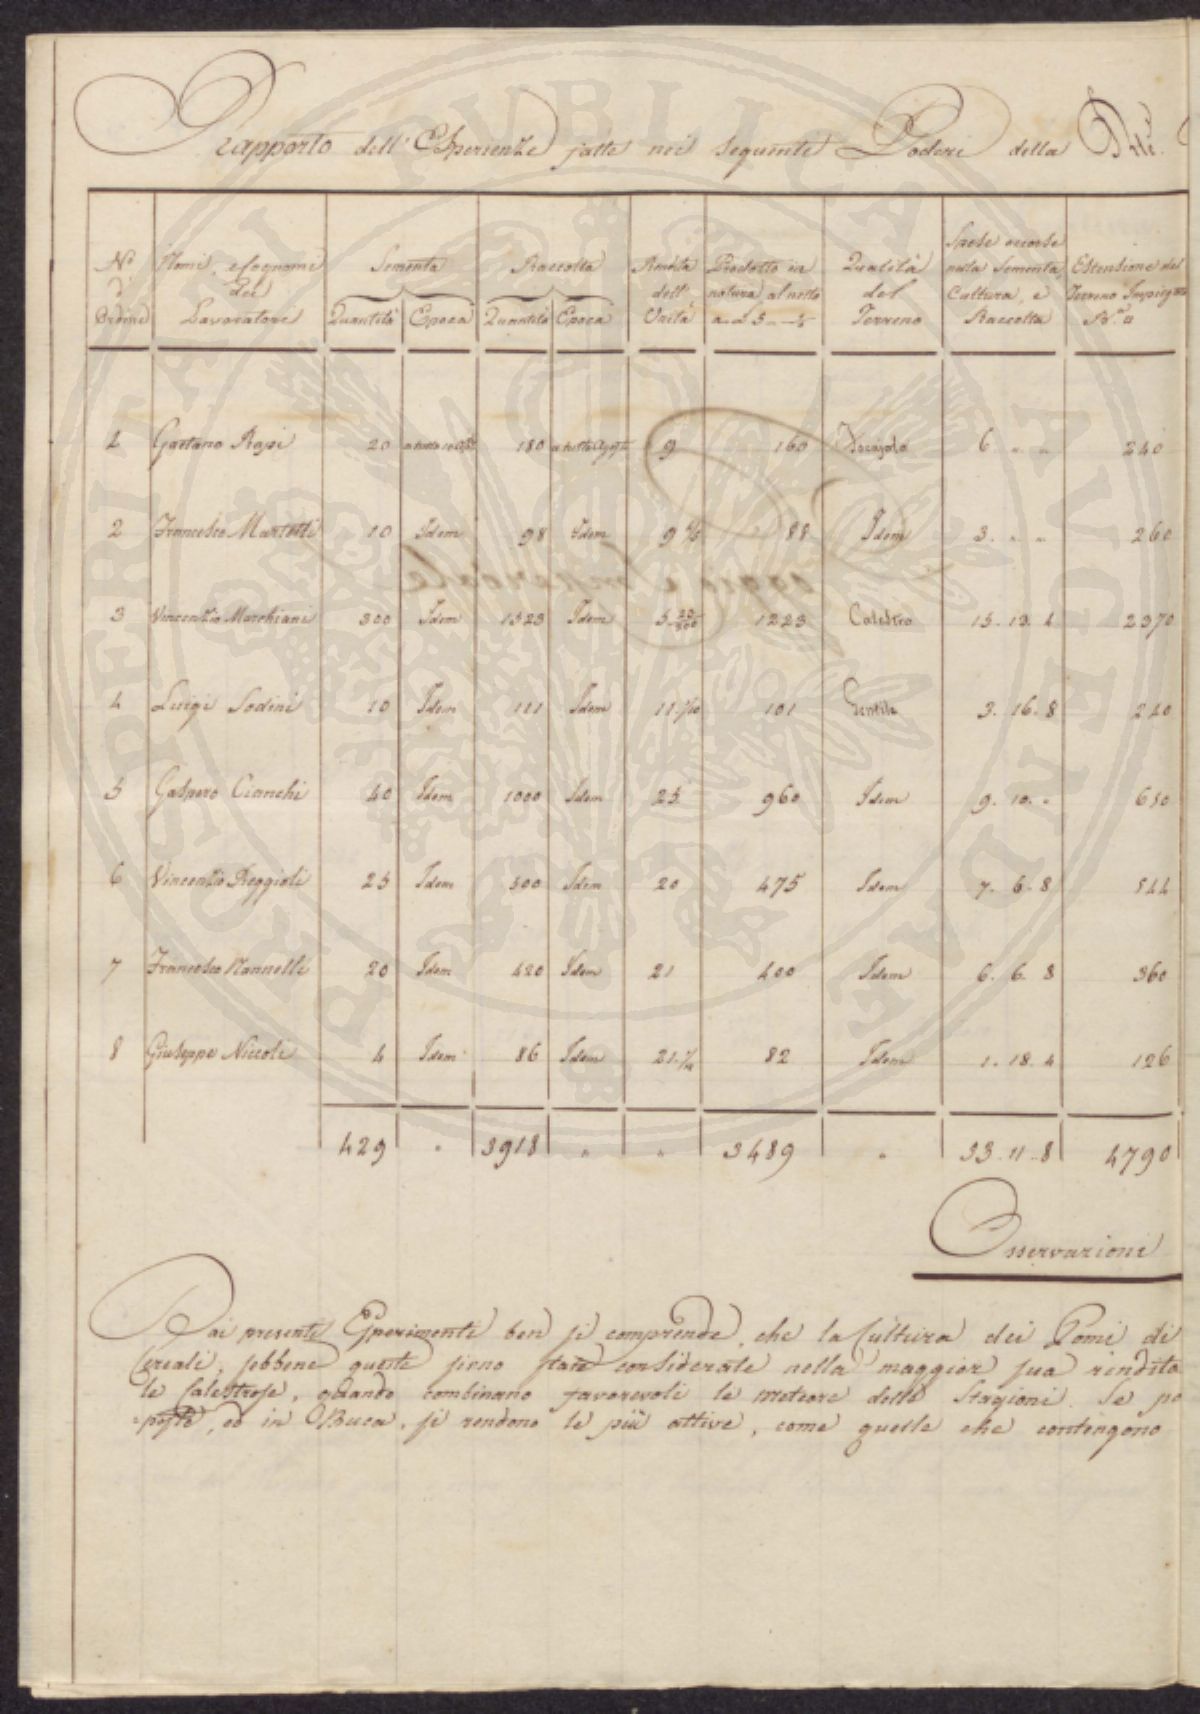 Rapporto dell'Esperienze fatte nei seguenti Poderi della
N.º d'Ordine | Nomi, e Cognomi dei Lavoratori | Sementa Quantità | Epoca | Raccolta Quantità | Epoca | Rendita dell'Unità | Prodotto in natura al netto | Qualità del Terreno | Spese occorse nella Sementa, Cultura, e Raccolta | Estensione del Terreno Impiegato
1 Gaetano Rapi 20 180 9 160 6 " " 240
2 Francesco Martelli 10 Idem 98 Idem 9 4/5 88 Idem 3. " " 260
3 Vincenzio Marchiani 300 Idem 1523 Idem 5 23/300 1223 Calestro 15. 13. 4 2370
4 Luigi Sodini 10 Idem 111 Idem 11. 1/10 101 Gentile 3. 16. 8 240
5 Gaspero Cianchi 40 Idem 1000 Idem 25 960 Idem 9. 10. " 650
6 Vincenzio Reggioli 25 Idem 500 Idem 20 475 Idem 7. 6. 8 544
7 Francesco Nannelli 20 Idem 420 Idem 21 400 Idem 6. 6. 8 360
8 Giuseppe Niccoli 4 Idem 86 Idem 21. 82 Idem 1. 18. 4 126
429 " 3918 " " 3489 " 53. 11. 8 4790
Osservazioni
Dai presenti Esperimenti ben si comprende, che la Cultura dei Pomi di
Cereali, sebbene queste sieno state considerate nella maggior sua rendita
le Calestrose, quando combinano favorevoli le meteore delle Stagioni. Se po
poste, ed in Buca, si rendono le più attive, come quelle che contengono
PROSPERITATI PUBLICAE AUGENDAE